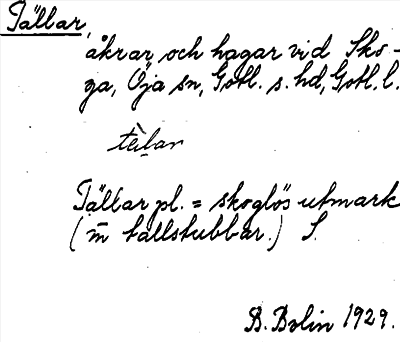 Tällar,
åkrar och hagar vid Sko-
ga, Öja sn, Gotl. s. hd, Gotl. l.
Tällar pl. = skoglös utmark
(m̄ tallstubbar.) S.
B. Bolin 1929.